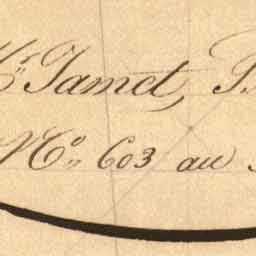 Jamet,
N.º 603 au